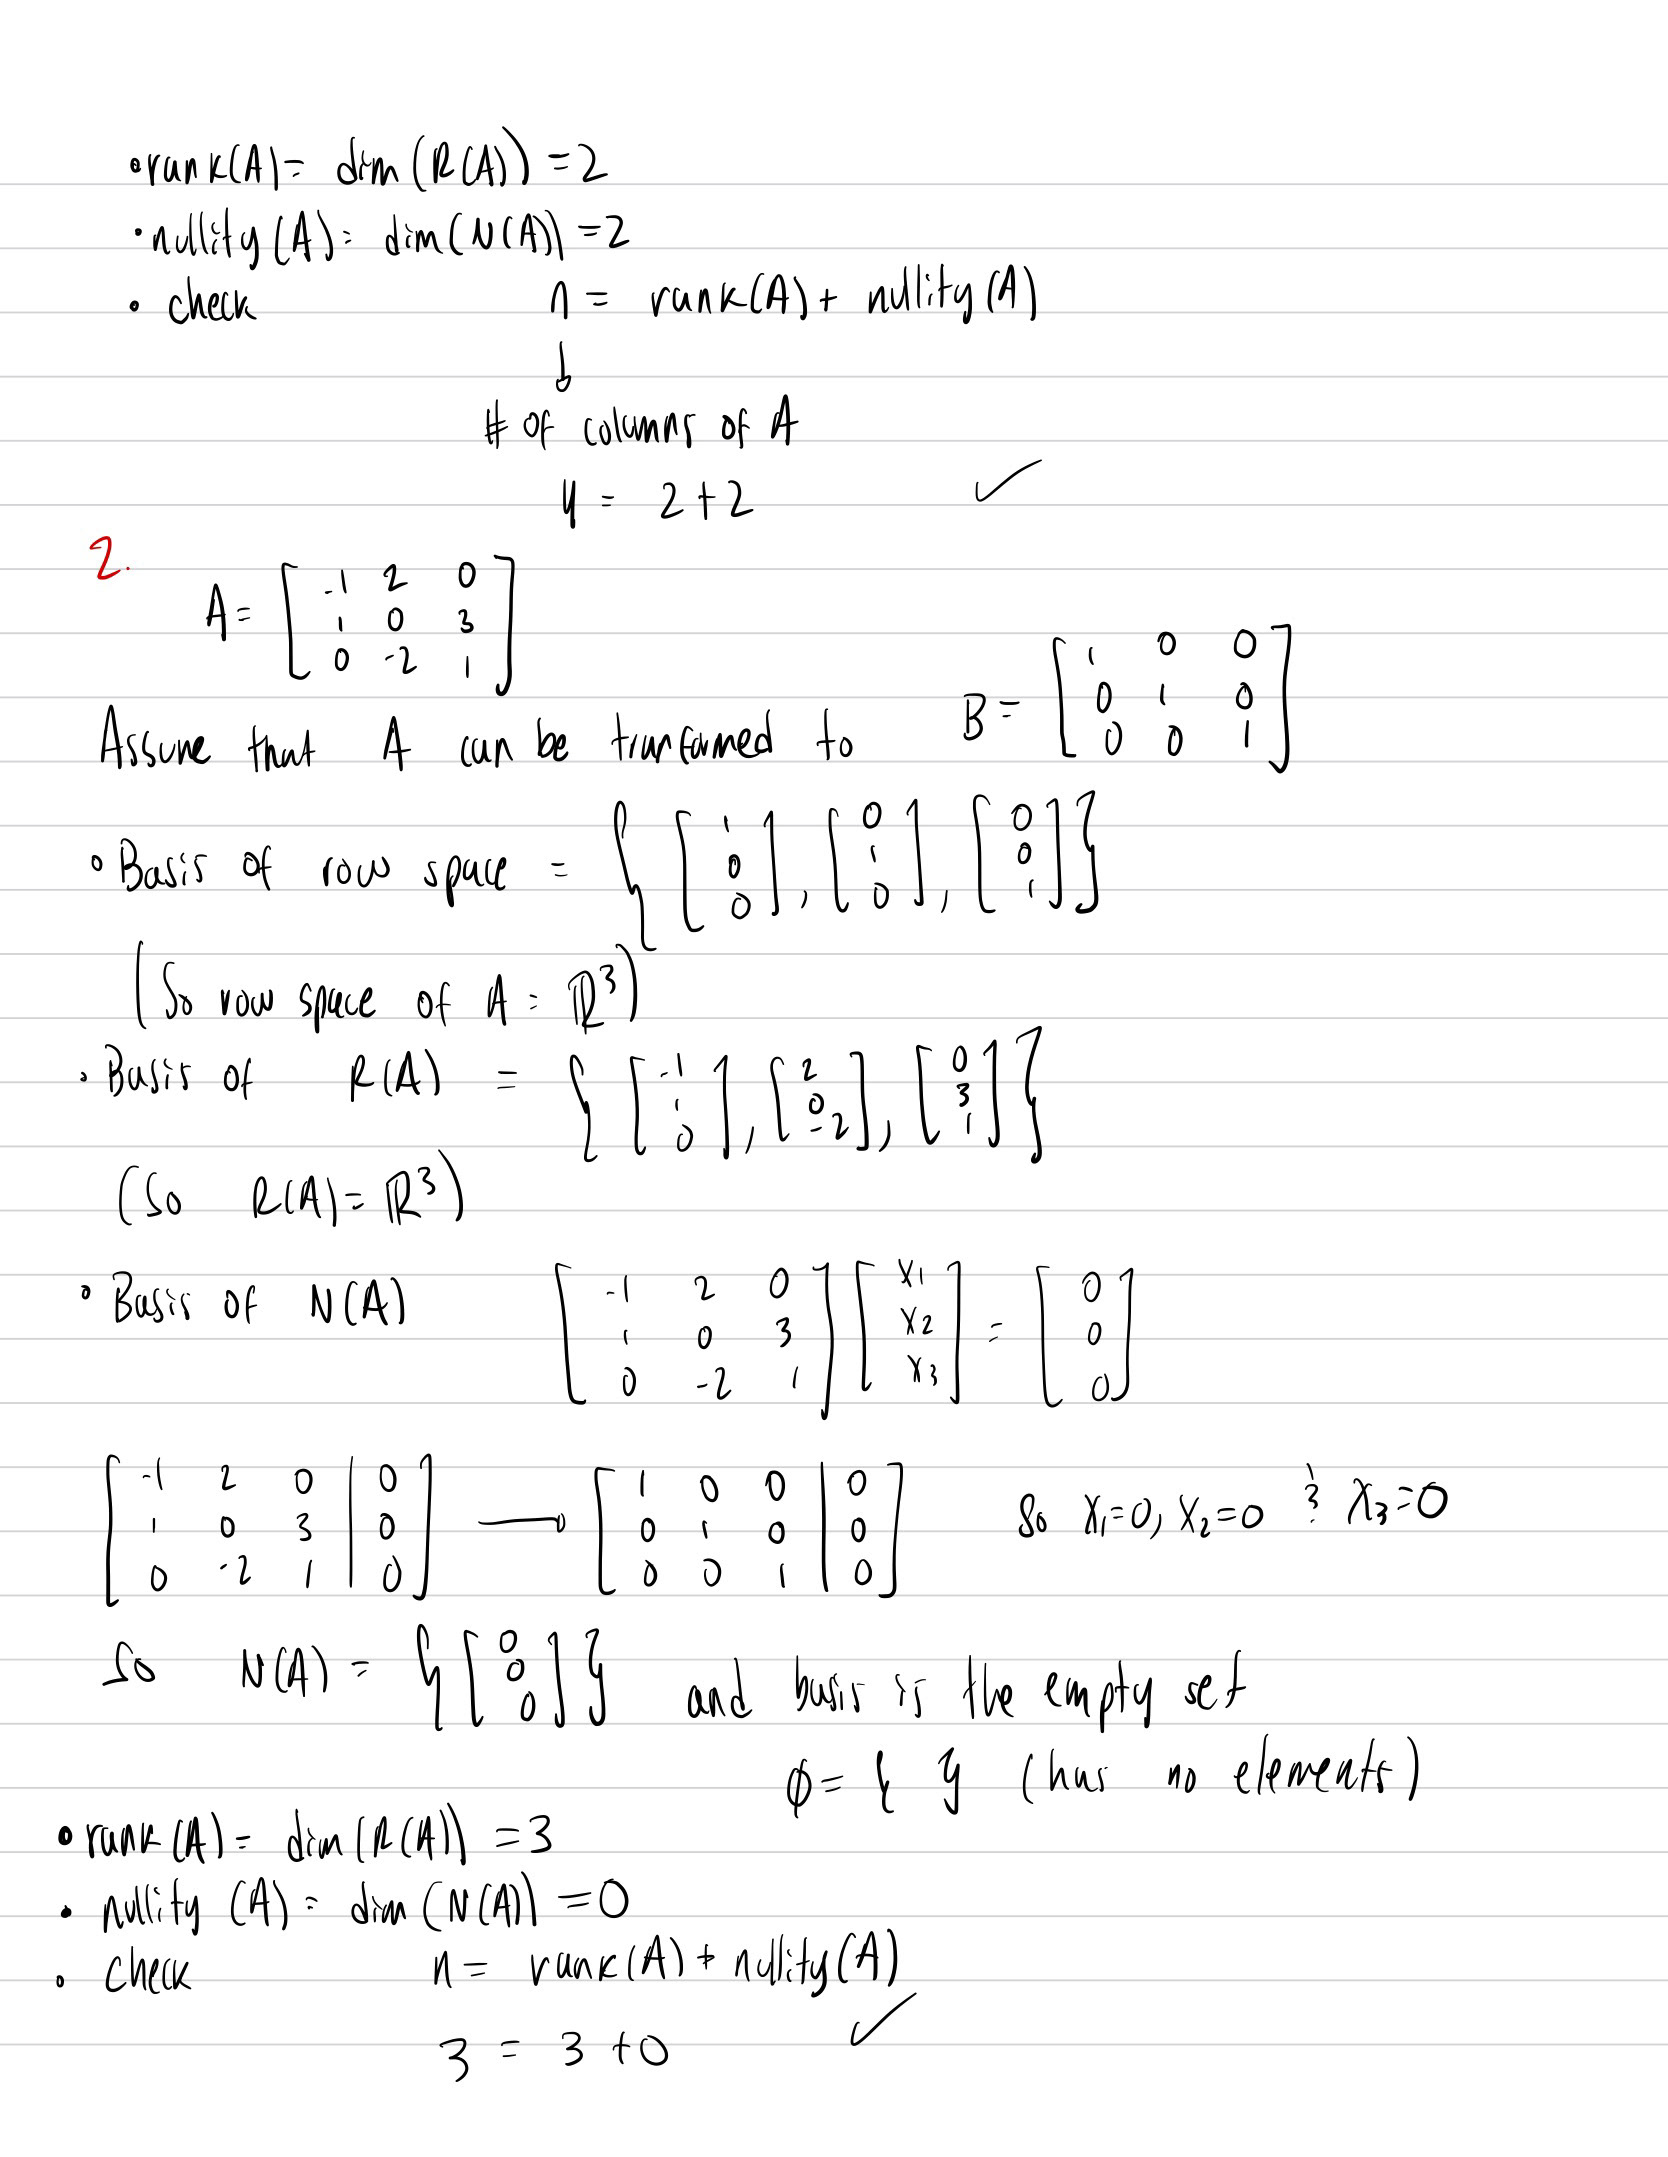 • rank(A) = dim(R(A)) = 2
• nullity(A) = dim(N(A)) = 2
• check n = rank(A) + nullity(A)
↓
# of columns of A
4 = 2 + 2 ✓
2.
A = [ -1 2 0
1 0 3
0 -2 1 ]
Assume that A can be tranformed to B = [ 1 0 0
0 1 0
0 0 1 ]
• Basis of row space = { [ 1 0 0 ], [ 0 1 0 ], [ 0 0 1 ] }
(So row space of A = ℝ³)
• Basis of R(A) = { [ -1 1 0 ], [ 2 0 -2 ], [ 0 3 1 ] }
(So R(A) = ℝ³)
• Basis of N(A) [ -1 2 0
1 0 3
0 -2 1 ] [ x₁ x₂ x₃ ] = [ 0 0 0 ]
[ -1 2 0 | 0
1 0 3 | 0
0 -2 1 | 0 ] → [ 1 0 0 | 0
0 1 0 | 0
0 0 1 | 0 ] So x₁=0, x₂=0 & x₃=0
So N(A) = { [ 0 0 0 ] } and basis is the empty set
∅ = { } (has no elements)
• rank(A) = dim(R(A)) = 3
• nullity (A) = dim(N(A)) = 0
• check n = rank(A) + nullity(A)
3 = 3 + 0 ✓